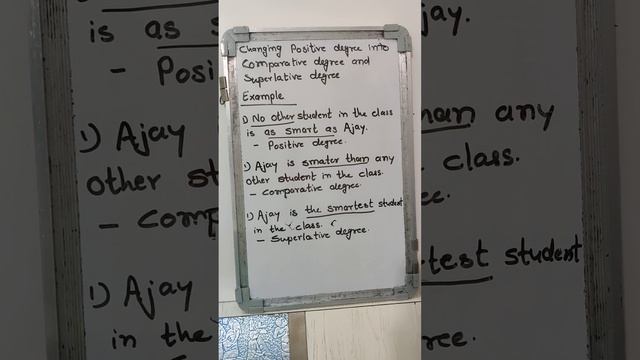 Changing Positive degree into
Comparative degree and
Superlative degree
Example
1) No other student in the class
is as smart as Ajay.
- Positive degree.
1) Ajay is smater than any
other student in the class.
- Comparative degree.
1) Ajay is the smartest student
in the class.
- Superlative degree.